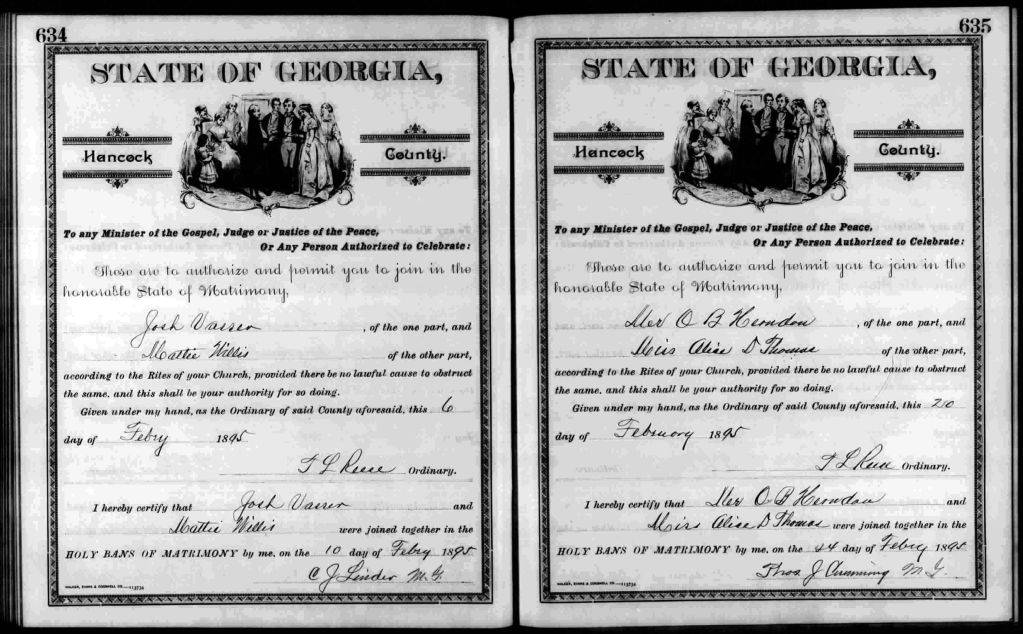 634
STATE OF GEORGIA,
Hancock County.
To any Minister of the Gospel, Judge or Justice of the Peace,
Or Any Person Authorized to Celebrate:
These are to authorize and permit you to join in the
honorable State of Matrimony,
Josh Vasser , of the one part, and
Mattie Willis of the other part,
according to the Rites of your Church, provided there be no lawful cause to obstruct
the same, and this shall be your authority for so doing.
Given under my hand, as the Ordinary of said County aforesaid, this 6
day of Febry 1895
T L Reese Ordinary.
I hereby certify that Josh Vasser and
Mattie Willis were joined together in the
HOLY BANS OF MATRIMONY by me, on the 10 day of Febry 1895
C J Linder M. G.
WALKER, EVANS & COGSWELL CO.—113734
635
STATE OF GEORGIA,
Hancock County.
To any Minister of the Gospel, Judge or Justice of the Peace,
Or Any Person Authorized to Celebrate:
These are to authorize and permit you to join in the
honorable State of Matrimony,
O B Herndon , of the one part, and
Miss Alice D Thomas of the other part,
according to the Rites of your Church, provided there be no lawful cause to obstruct
the same, and this shall be your authority for so doing.
Given under my hand, as the Ordinary of said County aforesaid, this 20
day of February 1895
T L Reese Ordinary.
I hereby certify that O B Herndon and
Miss Alice D Thomas were joined together in the
HOLY BANS OF MATRIMONY by me, on the 24 day of Febry 1895
Thos J M. G.
WALKER, EVANS & COGSWELL CO.—113734